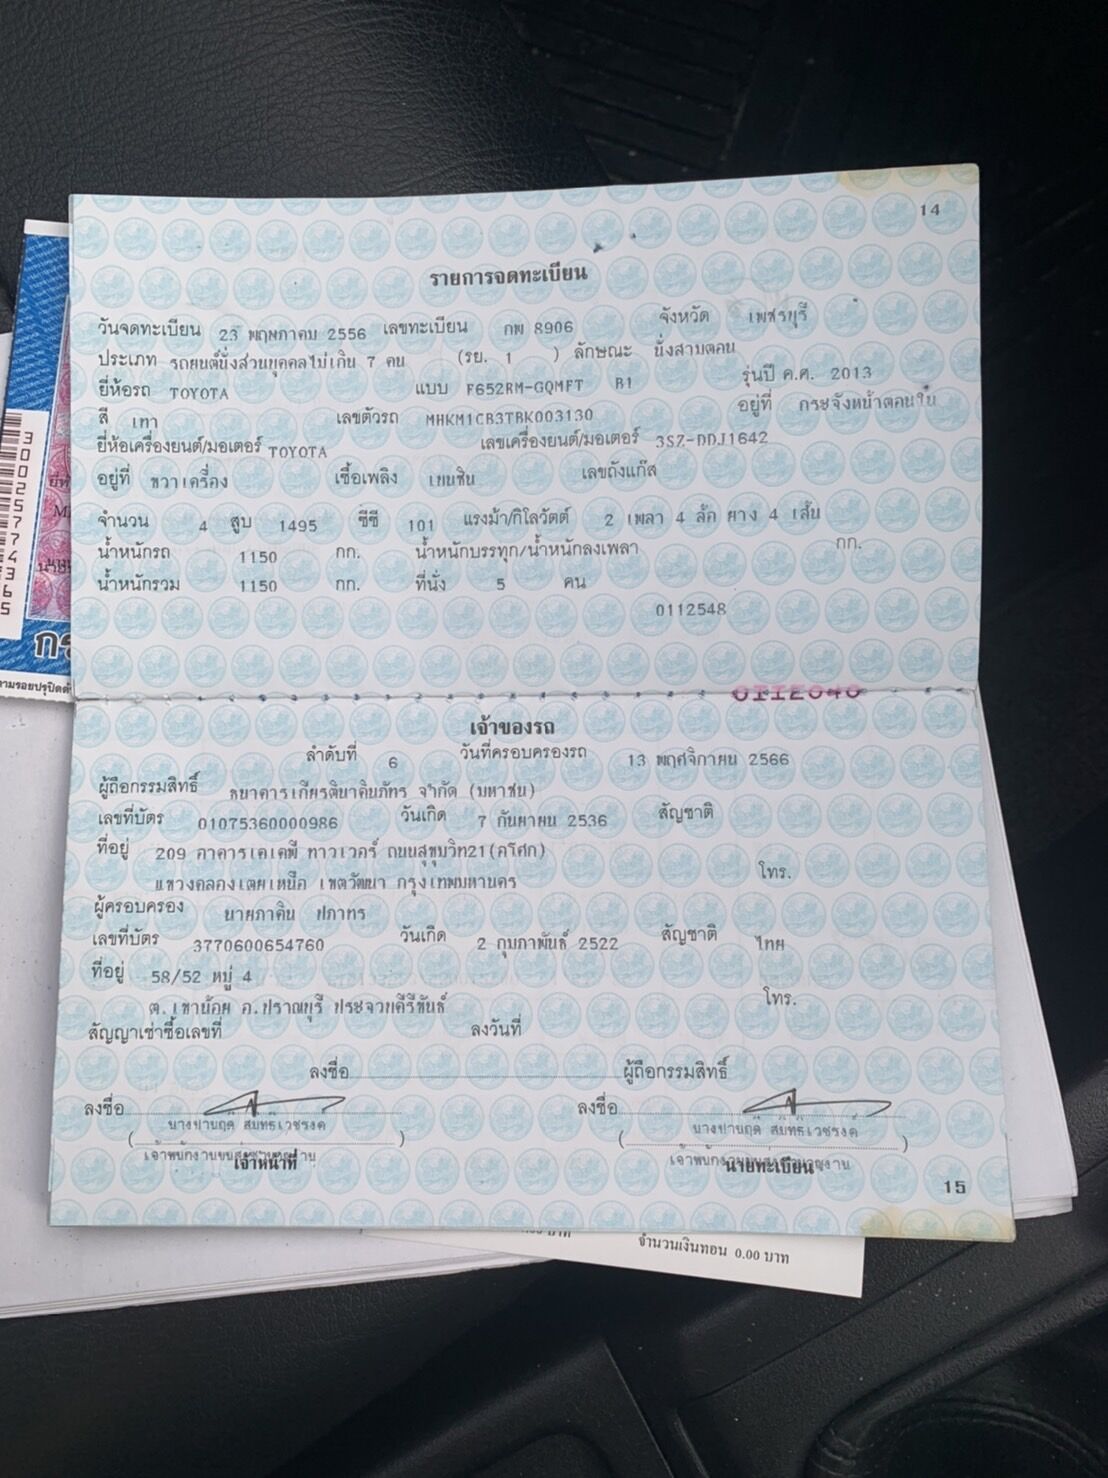 14
รายการจดทะเบียน
วันจดทะเบียน 23 พฤษภาคม 2556 เลขทะเบียน กพ 8906 จังหวัด เพชรบุรี
ประเภท รถยนต์นั่งส่วนบุคคลไม่เกิน 7 คน (รย. 1 ) ลักษณะ นั่งสามตอน
ยี่ห้อรถ TOYOTA แบบ F652RM-GQMFT B1 รุ่นปี ค.ศ. 2013
สี เทา เลขตัวรถ MHKM1CB3TBK003130 อยู่ที่ กระจังหน้าตอนใน
ยี่ห้อเครื่องยนต์/มอเตอร์ TOYOTA เลขเครื่องยนต์/มอเตอร์ 3SZ-DDJ1642
อยู่ที่ ขวาเครื่อง เชื้อเพลิง เบนซิน เลขถังแก๊ส
จำนวน 4 สูบ 1495 ซีซี 101 แรงม้า/กิโลวัตต์ 2 เพลา 4 ล้อ ยาง 4 เส้น
น้ำหนักรถ 1150 กก. น้ำหนักบรรทุก/น้ำหนักลงเพลา กก.
น้ำหนักรวม 1150 กก. ที่นั่ง 5 คน
0112548
เจ้าของรถ
ลำดับที่ 6 วันที่ครอบครองรถ 13 พฤศจิกายน 2566
ผู้ถือกรรมสิทธิ์ ธนาคารเกียรตินาคินภัทร จำกัด (มหาชน)
เลขที่บัตร 01075360000986 วันเกิด 7 กันยายน 2536 สัญชาติ
ที่อยู่ 209 อาคารเคเคพี ทาวเวอร์ ถนนสุขุมวิท21(อโศก)
แขวงคลองเตยเหนือ เขตวัฒนา กรุงเทพมหานคร โทร.
ผู้ครอบครอง นายภาคิน ปภาทร
เลขที่บัตร 3770600654760 วันเกิด 2 กุมภาพันธ์ 2522 สัญชาติ ไทย
ที่อยู่ 58/52 หมู่ 4
ต.เขาน้อย อ.ปราณบุรี ประจวบคีรีขันธ์ โทร.
สัญญาเช่าซื้อเลขที่ ลงวันที่
ลงชื่อ ผู้ถือกรรมสิทธิ์
ลงชื่อ ลงชื่อ
เจ้าหน้าที่ นายทะเบียน
15
จำนวนเงินทอน 0.00 บาท
30025774365